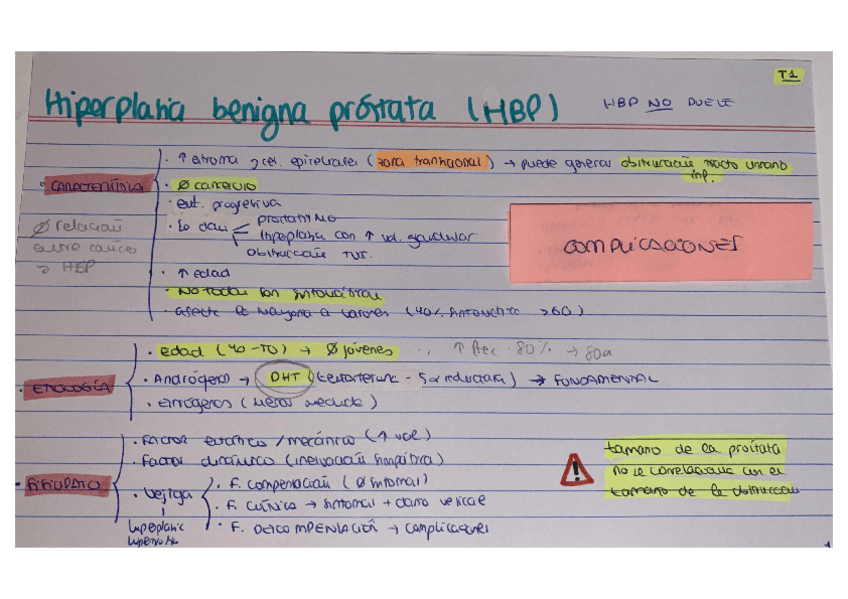 T1
Hiperplasia benigna próstata (HBP)
HBP NO DUELE
CARACTERÍSTICA
· ↑ estroma y cel. epiteliales (zona transicional) → puede generar obstrucción tracto urinario inf.
· Ø cancerio
· ent. progresiva
prostatismo
hiperplasia con ↑ vol. glandular
obstrucción TUI.
· ↑ edad
· No todas son sintomáticas
· afecta la mayoría a varones (40% sintomático >60)
Ø relación
entre cáncer
→ HBP
COMPLICACIONES
· ETIOLOGÍA
· edad (40-70) → Ø jóvenes
↑ frec 80% → 80a
· Andrógenos → DHT (testosterona - 5α reductasa) → FUNDAMENTAL
· estrógenos (menor medida)
· FISIOPATO
· Factor estático / mecánico (↑ vol)
· Factor dinámico (inervación simpática)
· Vejiga
hiperplasia
hipertrofia
· F. compensación (Ø síntomas)
· F. clínica → síntomas + daño vesical
· F. DESCOMPENSACIÓN → complicaciones
tamaño de la próstata
no se correlaciona con el
tamaño de la obstrucción
1